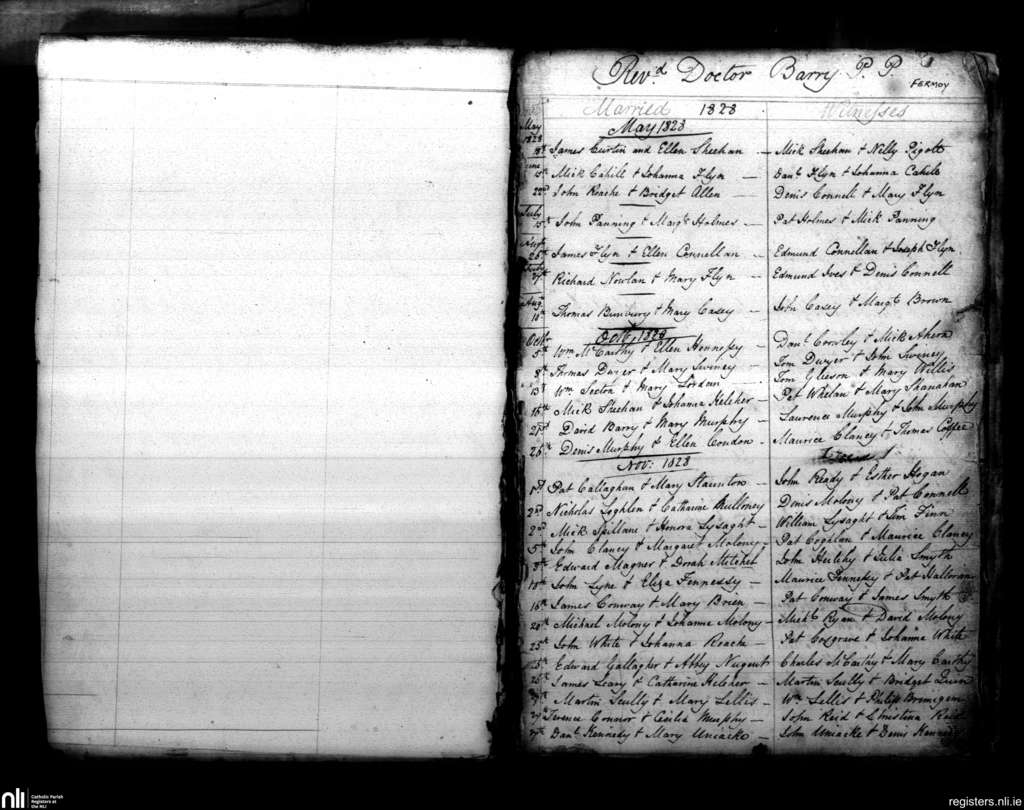 Revd Doctor Barry P. P.
FERMOY
Married 1828 Witnesses
May 1828
May 1828
18th James Curtin and Ellen Sheehan — Mick Sheehan & Nelly Pigott
June
15th Mick Cahill & Johanna Flyn — Danl Flyn & Johanna Cahill
22nd John Roache & Bridget Allen — Denis Connell & Mary Flyn
July
15th John Panning & Margt Holmes — Pat Holmes & Mick Panning
26th James Flyn & Ellen Connellan — Edmund Connellan & Joseph Flyn
Richard Nowlan & Mary Flyn — Edmund Ives & Denis Connell
Augt
10th Thomas Bunbury & Mary Casey — John Casey & Margt Brown
Octr Octr 1828
5th Wm McCarthy & Ellen Hennessy — Danl Crowley & Mick Ahern
8th Thomas Dwyer & Mary Swiney — Tom Dwyer & John Swiney
13th Wm Sexton & Mary Jordan — Tom Gleeson & Mary Willis
16th Mick Sheehan & Johanna Keleher — Pat Whelan & Mary Shanahan
21st David Barry & Mary Murphy — Laurence Murphy & John Murphy
26th Denis Murphy & Ellen Condon — Maurice Clancy & Thomas Coffee
Nov: 1828
1st Pat Callaghan & Mary Staunton — John Ready & Esther Hogan
2nd Nicholas Loghlen & Catharine Mulloney Denis Molony & Pat Connell
2nd Mick Spillane & Honora Lysaght — William Lysaght & Tim Finn
5th John Clancy & Margaret Molony — Pat Coghlan & Maurice Clancy
8th Edward Magner & Dorah Mitchel John Hurley & Julia Smyth
John Lyne & Eliza Fennessy — Maurice Fennessy & Pat Halloran
16th James Conway & Mary Brien — Pat Conway & James Smyth
20th Michael Molony & Johanna Molony — Michl Ryan & David Molony
25th John White & Johanna Roache Pat Cosgrave & Johanna White
25th Edward Gallagher & Abbey Nugent Charles McCarthy & Mary Carthy
26th James Leary & Catharine Keleher — Martin Scully & Bridget Quinn
27th Martin Scully & Mary Lellis — Wm Lellis & Philip Bromigan
27th Terence Connor & Cecilia Murphy — John Reid & Christina Reid
Danl Kennedy & Mary Uniacke — John Uniacke & Denis Kennedy
nli Catholic Parish
Registers at
the NLI
registers.nli.ie